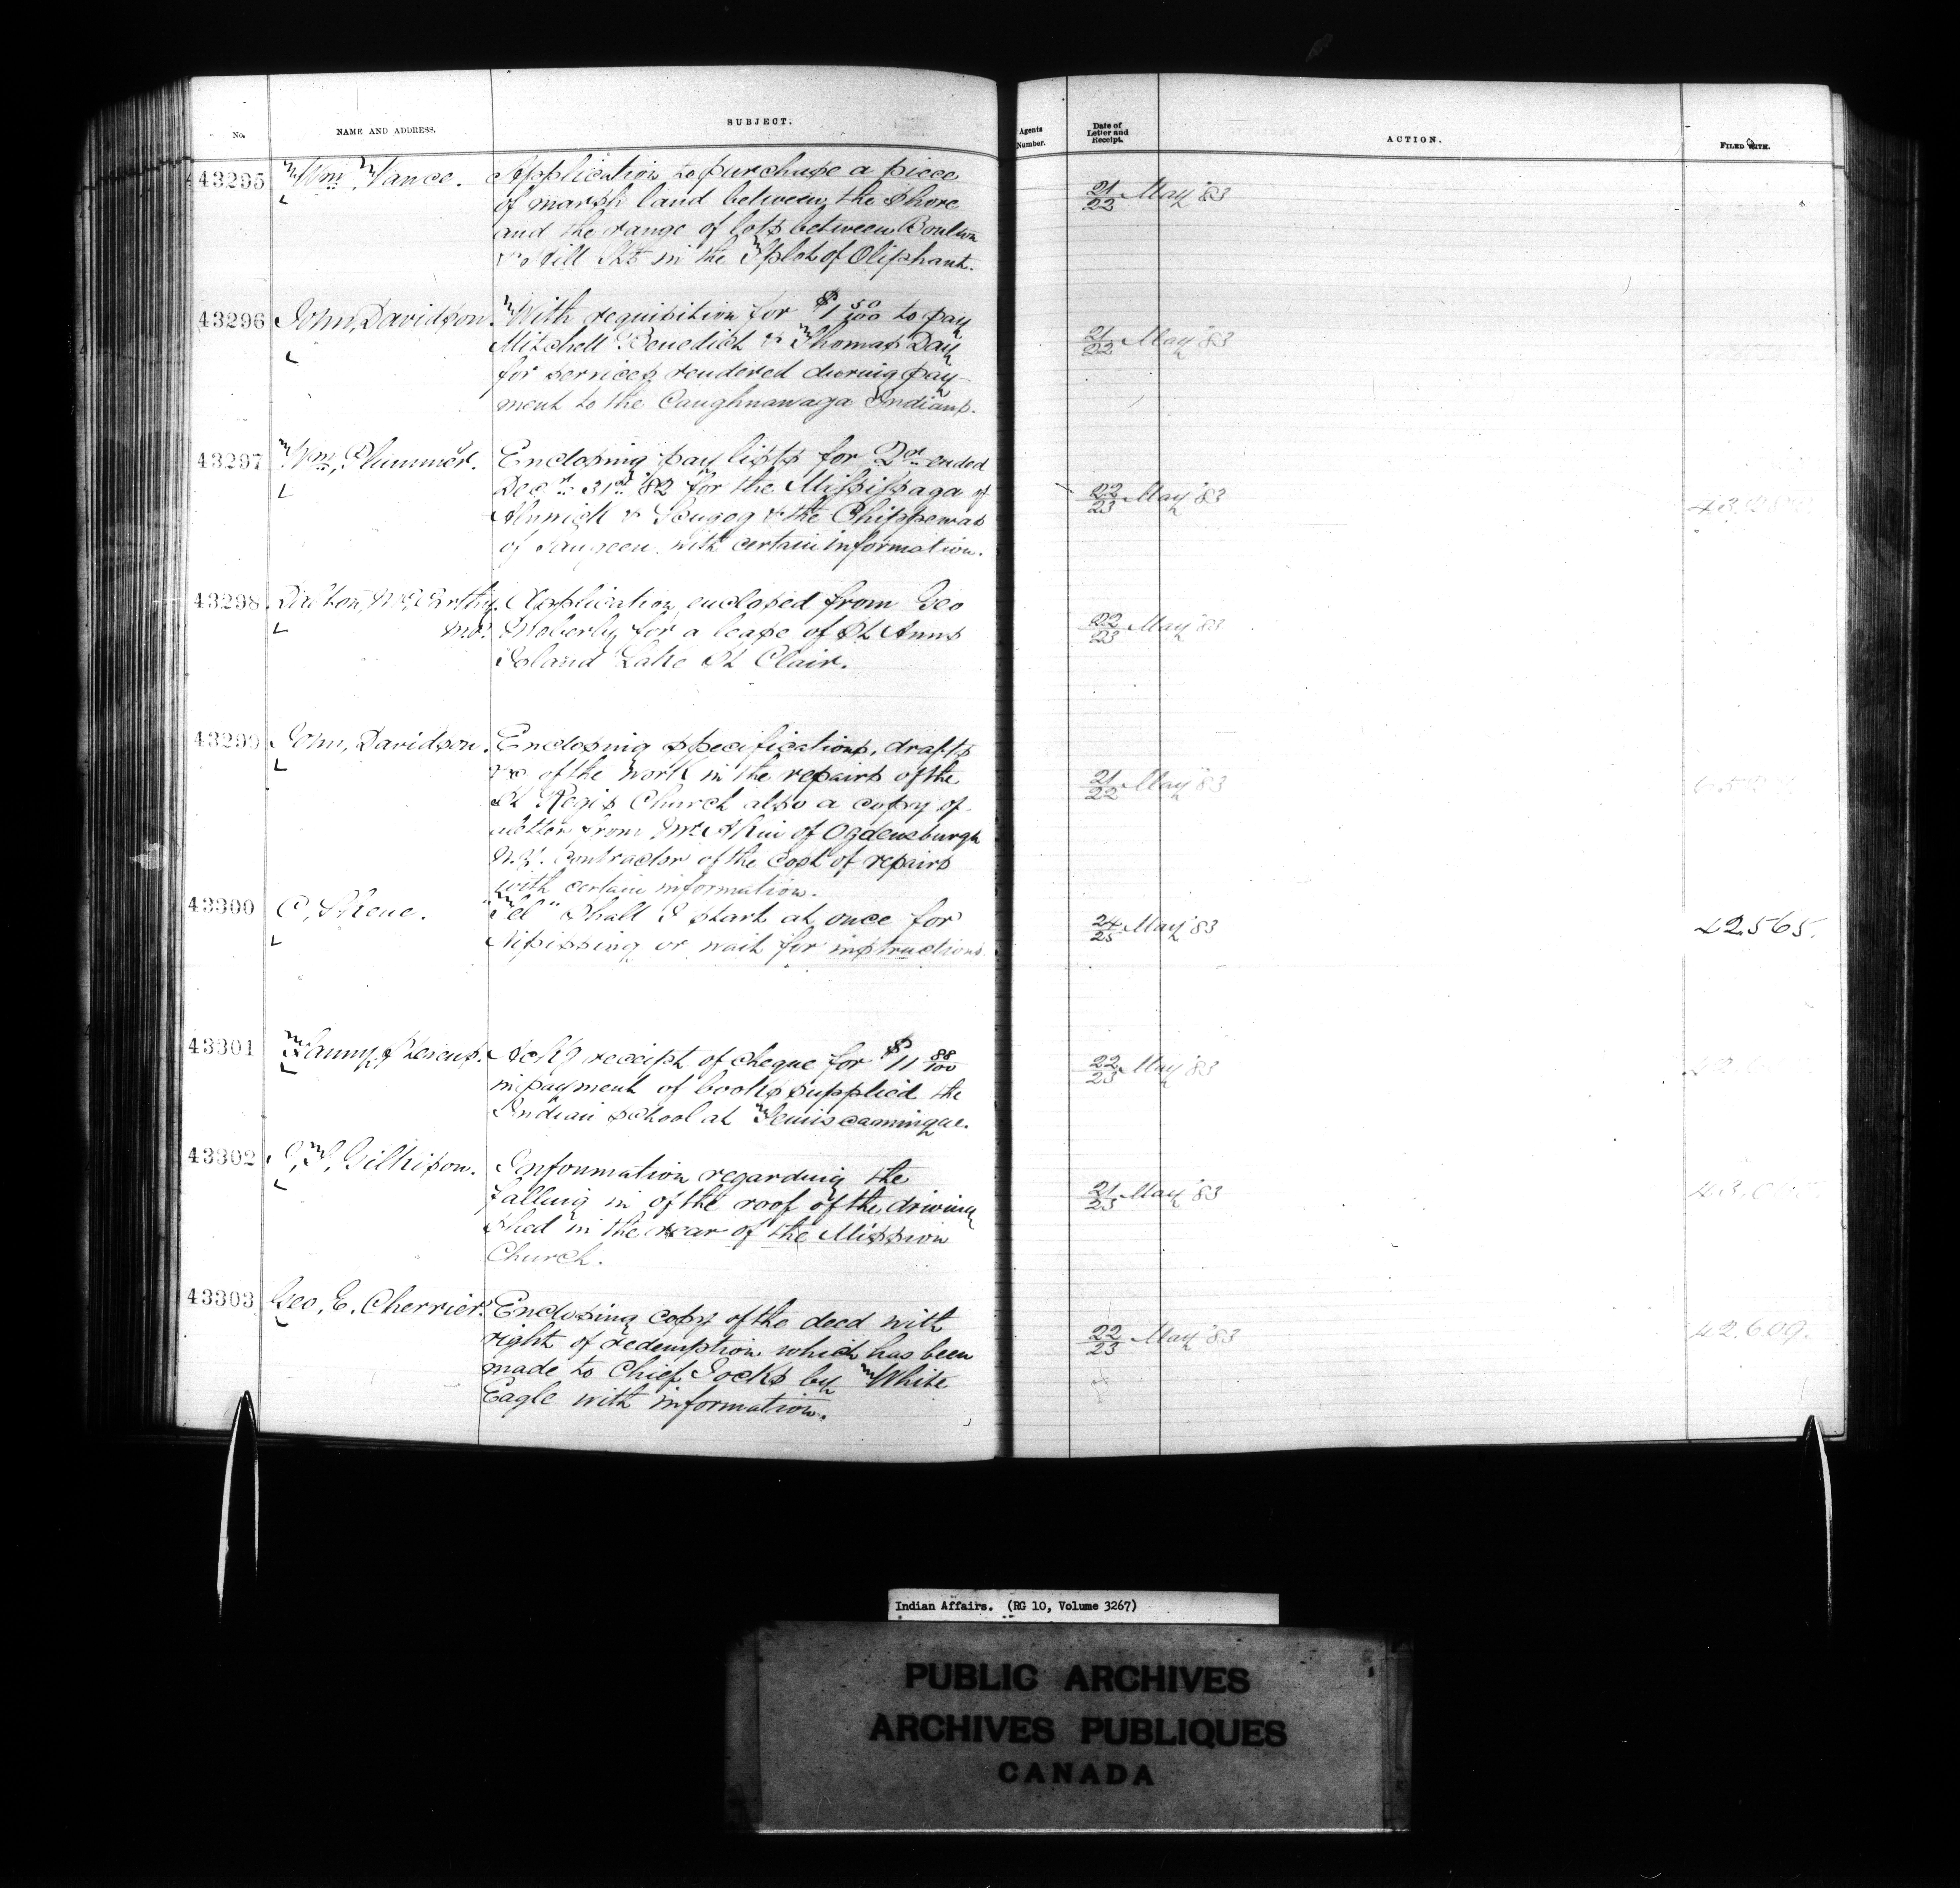 No. NAME AND ADDRESS. SUBJECT. Agents Number. Date of Letter and Receipt. ACTION. FILED WITH.
43295 Wm Vance. Application to purchase a piece
of marsh land between the Shore
and the range of lots between Boulton
& Hill Sts in the T plot of Oliphant.
21/22 May '83
43296 John Davidson. With requisition for $1 50/100 to pay
Mitchell Benedict & Thomas Day
for services rendered during pay-
ment to the Caughnawaga Indians.
21/22 May '83
43297 Wm Plummer. Enclosing pay lists for Qr ended
Decr 31st '82 for the Mississaga of
Alnwick & Scugog & the Chippewas
of Saugeen with certain information.
22/23 May '83
43298 Dalton McCarthy. Application enclosed from Geo
M.P. Moberly for a lease of St Anns
Island Lake St Clair.
22/23 May '83
43299 John Davidson. Enclosing specifications, drafts
&c of the work in the repairs of the
St Regis Church also a copy of
letter from Mr of Ogdensburgh
N.Y. contractor of the cost of repairs
with certain information.
21/22 May '83
43300 C. Skene. "Tel" Shall I start at once for
Nipissing or wait for instructions
24/25 May '83 42565.
43301 Ackg receipt of cheque for $11 88/100
in payment of books supplied the
Indian school at Temiscamingue.
22/23 May '83
43302 J.T. Gilkison. Information regarding the
falling in of the roof of the driving
shed in the rear of the Mission
Church.
21/23 May '83
43303 Geo. E. Cherrier. Enclosing copy of the deed with
right of redemption which has been
made to Chief Jocks by White
Eagle with information.
22/23 May '83 42.609.
Indian Affairs. (RG 10, Volume 3267)
PUBLIC ARCHIVES
ARCHIVES PUBLIQUES
CANADA